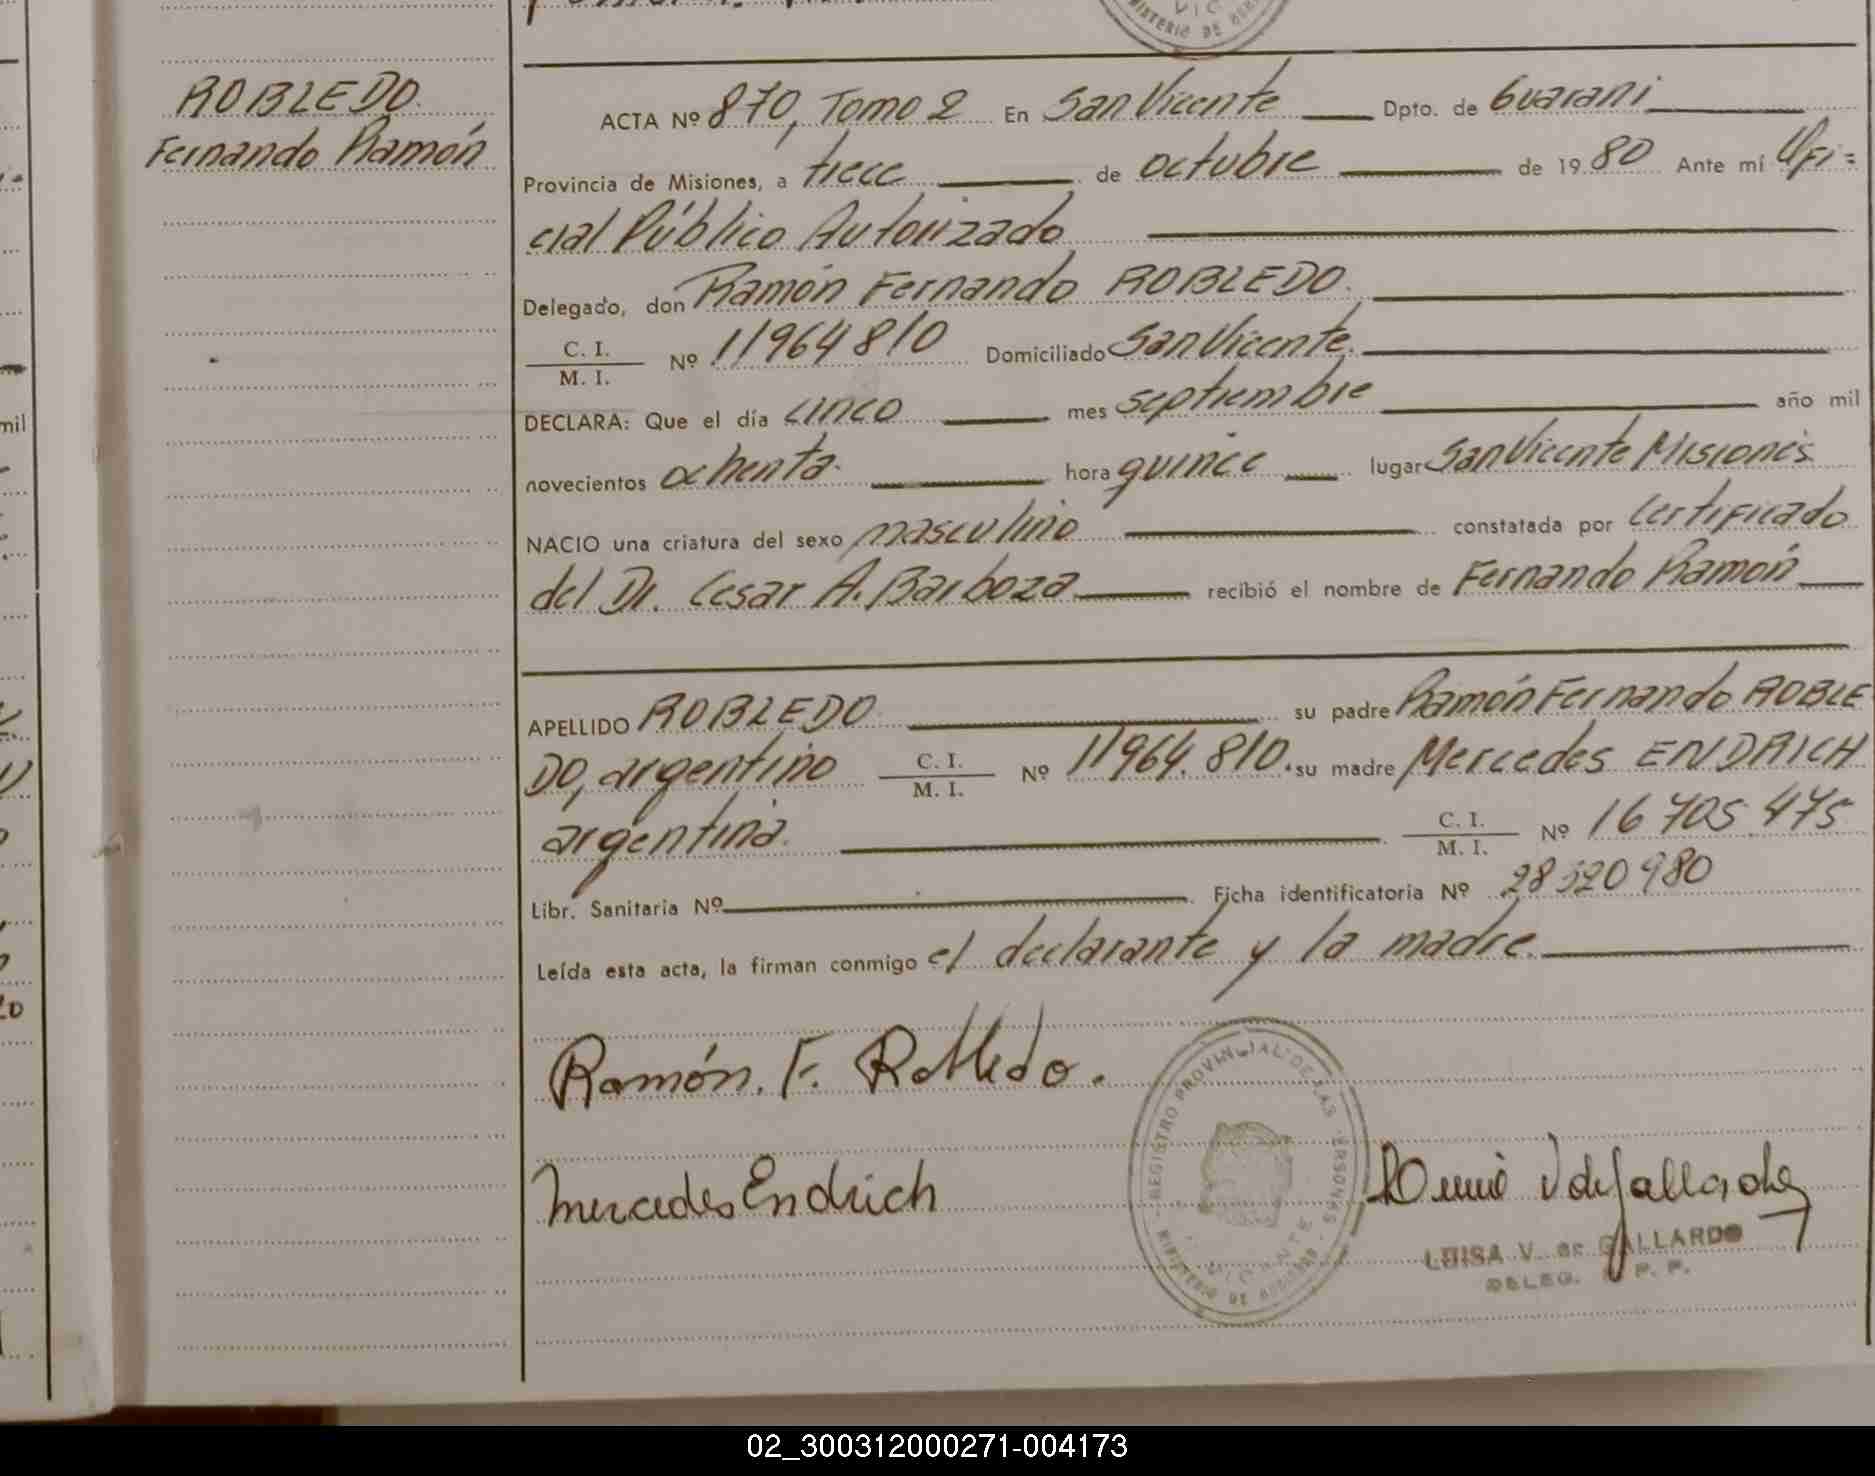 ROBLEDO
Fernando Ramón
ACTA Nº 870, Tomo 2 En San Vicente Dpto. de Guaraní
Provincia de Misiones, a trece de octubre de 1980 Ante mí Ofi=
cial Público Autorizado
Delegado, don Ramón Fernando ROBLEDO.
C. I. / M. I. Nº 11964810 Domiciliado San Vicente.
DECLARA: Que el día cinco mes septiembre año mil
novecientos ochenta. hora quince lugar San Vicente Misiones
NACIO una criatura del sexo masculino constatada por Certificado
del Dr. Cesar A. Barboza recibió el nombre de Fernando Ramón
APELLIDO ROBLEDO su padre Ramón Fernando ROBLE
DO, argentino C. I. / M. I. Nº 11964.810. su madre Mercedes ENDRICH
argentina. C. I. / M. I. Nº 16 705.475
Libr. Sanitaria Nº Ficha identificatoria Nº 28520980
Leída esta acta, la firman conmigo el declarante y la madre.
Ramón. F. Robledo.
Mercedes Endrich
REGISTRO PROVINCIAL DE LAS PERSONAS
LUISA V. de GALLARDO
DELEG. R. P. P.
02_300312000271-004173